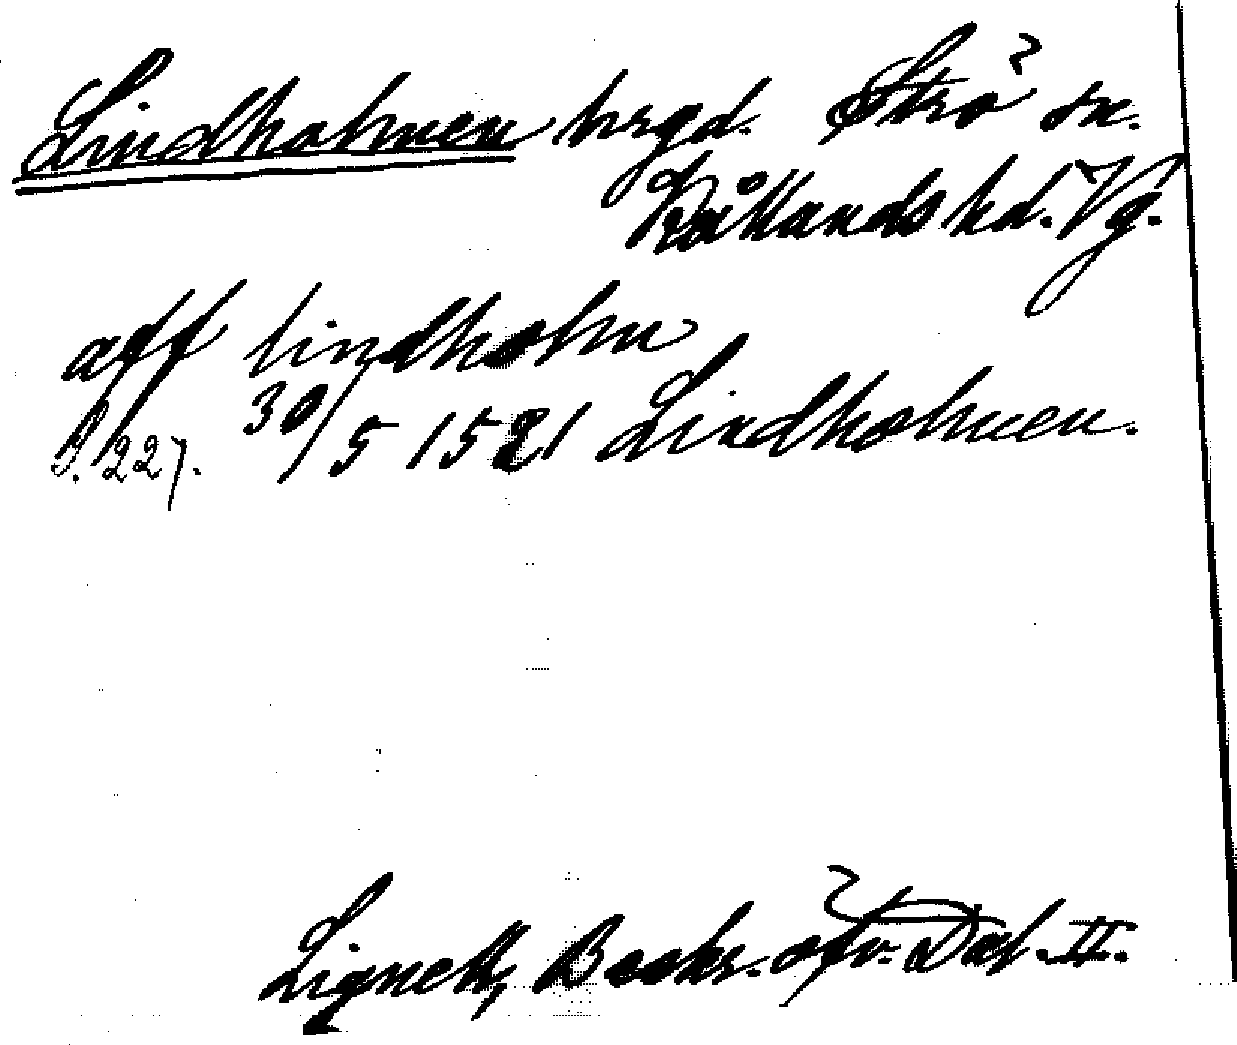 Lindholmen hrgd. Strö sn.
Kållands hd. Vg.
aff lindholm
S. 227. 30/5 1521 Lindholmen.
Lignell, Beskr. öfv. Dal. II.